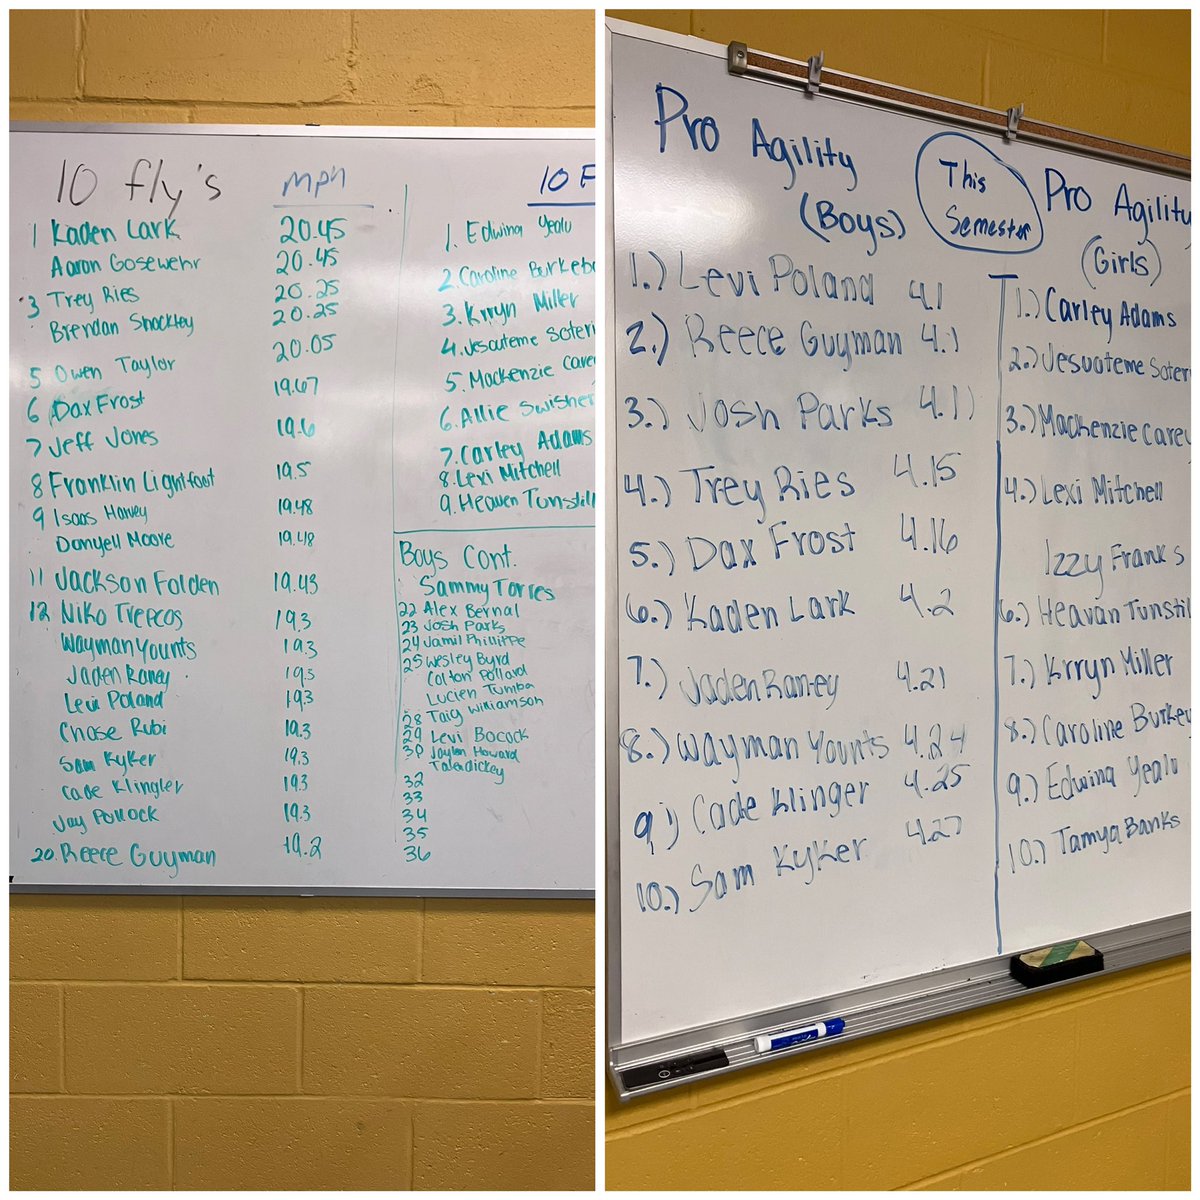 10 fly's mph
1 Kaden Lark 20.45
Aaron Gosewehr 20.45
3 Trey Ries 20.25
Brendan Shockley 20.25
5 Owen Taylor 20.05
6 Dax Frost 19.67
7 Jeff Jones 19.6
8 Franklin Lightfoot 19.5
9 Isaas Harvey 19.48
Danyell Moore 19.48
11 Jackson Folden 19.43
12 Niko Trepcos 19.3
Wayman Younts 19.3
Jaden Raney 19.3
Levi Poland 19.3
Chase Rubi 19.3
Sam Kyker 19.3
Cade Klingler 19.3
Jay Pollock 19.3
20. Reece Guyman 19.2
10 F
1. Edwina Yealu
2. Caroline Burkeb
3. Krryn Miller
4. Jesuateme Soteri
5. Mackenzie Carey
6. Allie Swisher
7. Carley Adams
8. Lexi Mitchell
9. Heaven Tunstill
Boys Cont.
Sammy Torres
22 Alex Bernal
23 Josh Parks
24 Jamil Phillippe
25 Wesley Byrd
Colton Pollard
Lucien Tumba
28 Taig Williamson
29 Levi Bocock
30 Jaylen Howard
Talen Dickey
32
33
34
35
36
Pro Agility
(Boys)
1.) Levi Poland 4.1
2.) Reece Guyman 4.1
3.) Josh Parks 4.11
4.) Trey Ries 4.15
5.) Dax Frost 4.16
6.) Kaden Lark 4.2
7.) Jaden Raney 4.21
8.) Wayman Younts 4.24
9.) Cade Klinger 4.25
10.) Sam Kyker 4.27
This
Semester
Pro Agility
(Girls)
1.) Carley Adams
2.) Jesuateme Soteri
3.) Mackenzie Carey
4.) Lexi Mitchell
Izzy Franks
6.) Heavan Tunstil
7.) Krryn Miller
8.) Caroline Burkey
9.) Edwina Yealu
10.) Tamya Banks